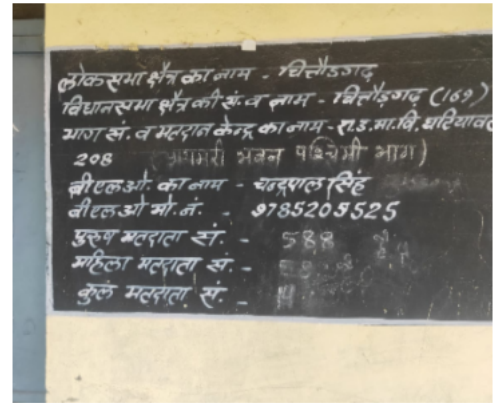 लोकसभा क्षेत्र का नाम - चित्तौड़गढ़
विधानसभा क्षेत्र की सं. व नाम - चित्तौड़गढ़ (169)
भाग सं. व मतदान केन्द्र का नाम - रा.उ.मा.वि. घटियावली
208 भवन पश्चिमी भाग)
बीएलओ. का नाम - चन्द्रपाल सिंह
बीएलओ मो. नं. - 9785205525
पुरुष मतदाता सं. - 588
महिला मतदाता सं. -
कुल मतदाता सं. -